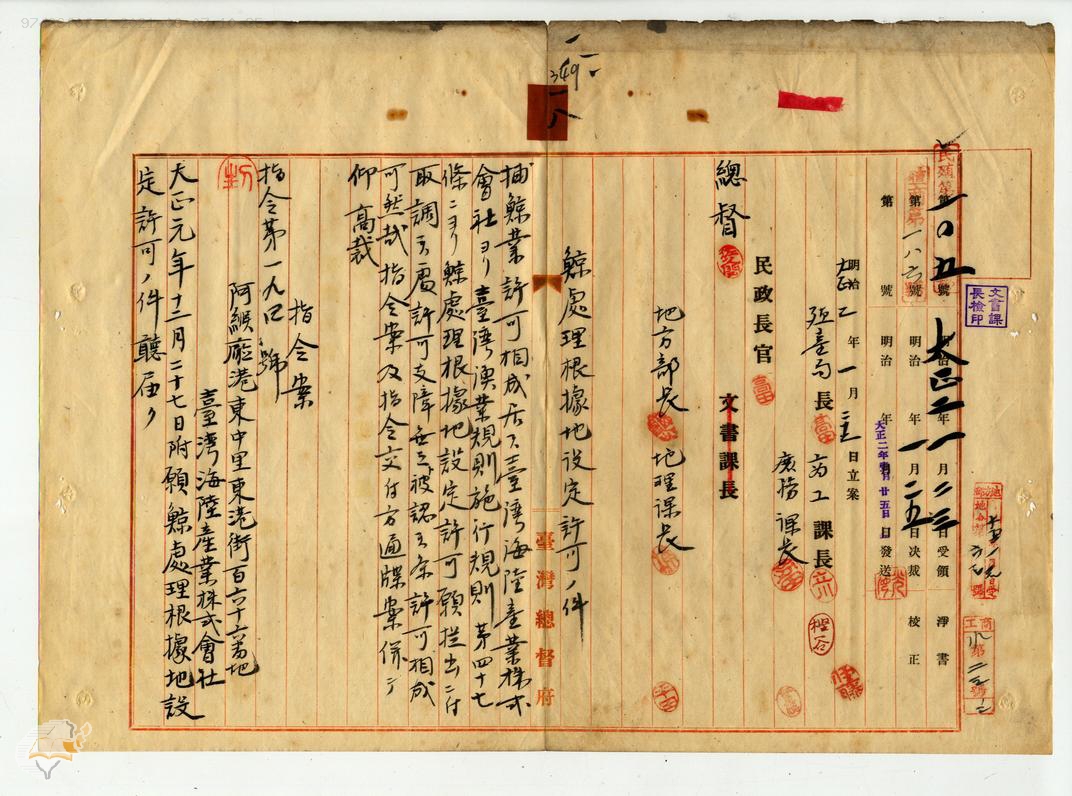 民殖第一〇五號 大正二年一月二三日受領 淨書
第一八六號 明治 年一月二五日決裁 校正
第 號 明治 年 月 日發送
大正二年壹月廿五日
文書課長檢印
商工第
明治大正二年一月 日立案
殖產局長 商工課長
庶務課長
民政長官
總督 文書課長
地方部長 地理課長
鯨處理根據地設定許可ノ件
捕鯨業許可相成居ル臺灣海陸產業株式
會社ヨリ臺灣漁業規則施行規則第四十七
條ニヨリ鯨處理根據地設定許可願提出ニ付
取調候處許可支障無之被認候条許可相成
可然哉指令案及指令交付方通牒案併テ
仰高裁
臺灣總督府
指令案
指令第一九四號
阿緱廳港東中里東港街百六十六番地
臺灣海陸產業株式會社
大正元年十二月二十七日附願鯨處理根據地設
定許可ノ件聽届ク
349